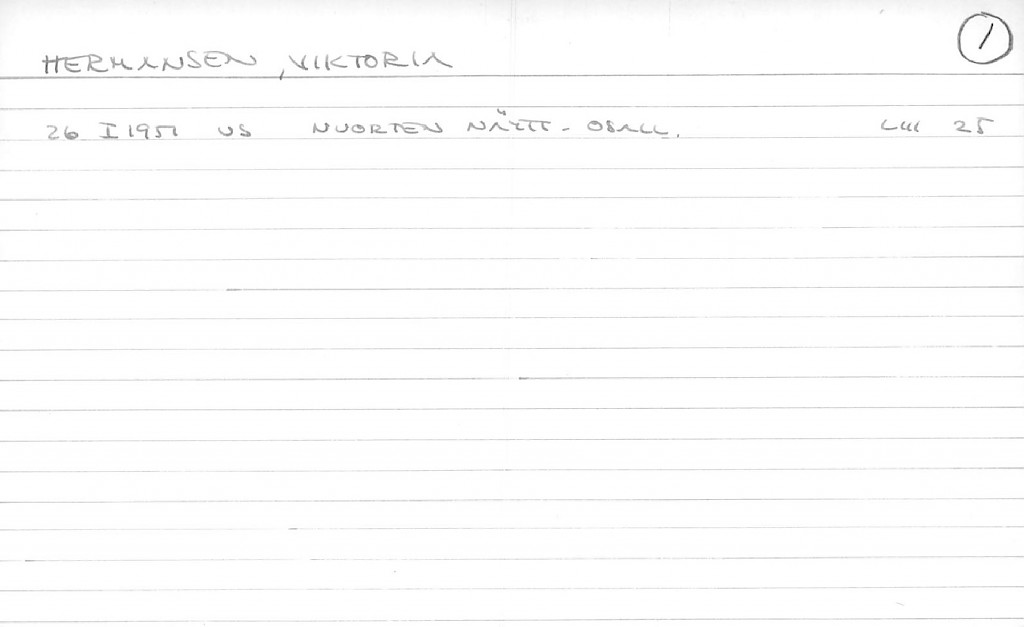 HERMANSEN, VIKTORIA
1
26 I 1951 US NUORTEN NÄYTT - OSALL. LIII 25